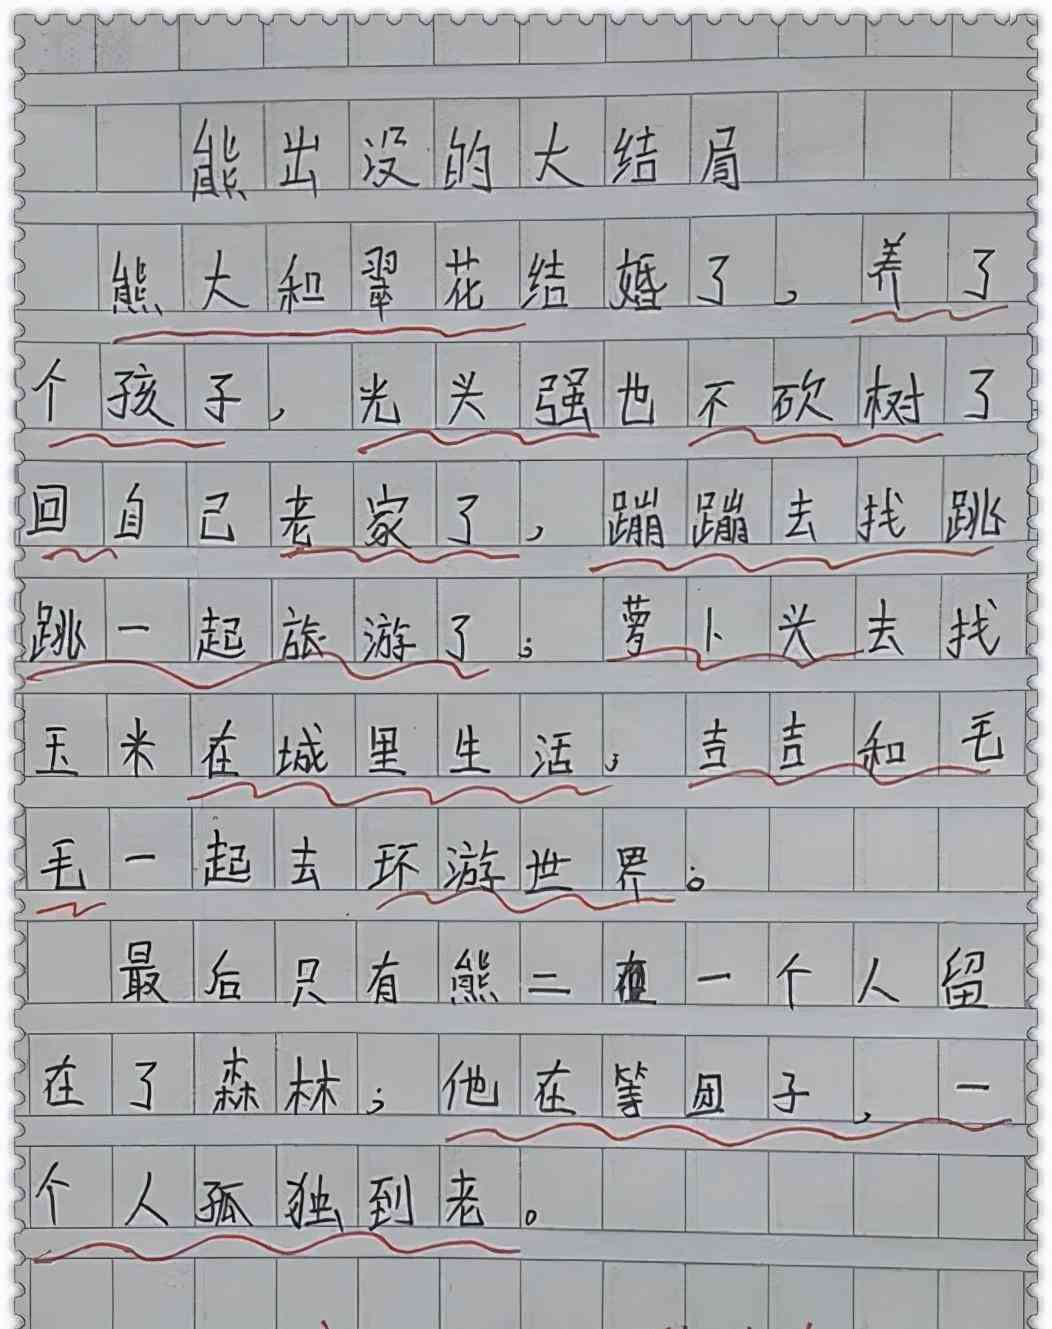 熊出没的大结局
熊大和翠花结婚了,养了
个孩子,光头强也不砍树了
回自己老家了,蹦蹦去找跳
跳一起旅游了;萝卜头去找
玉米在城里生活;吉吉和毛
毛一起去环游世界。
最后只有熊二一个人留
在了森林;他在等团子,一
个人孤独到老。